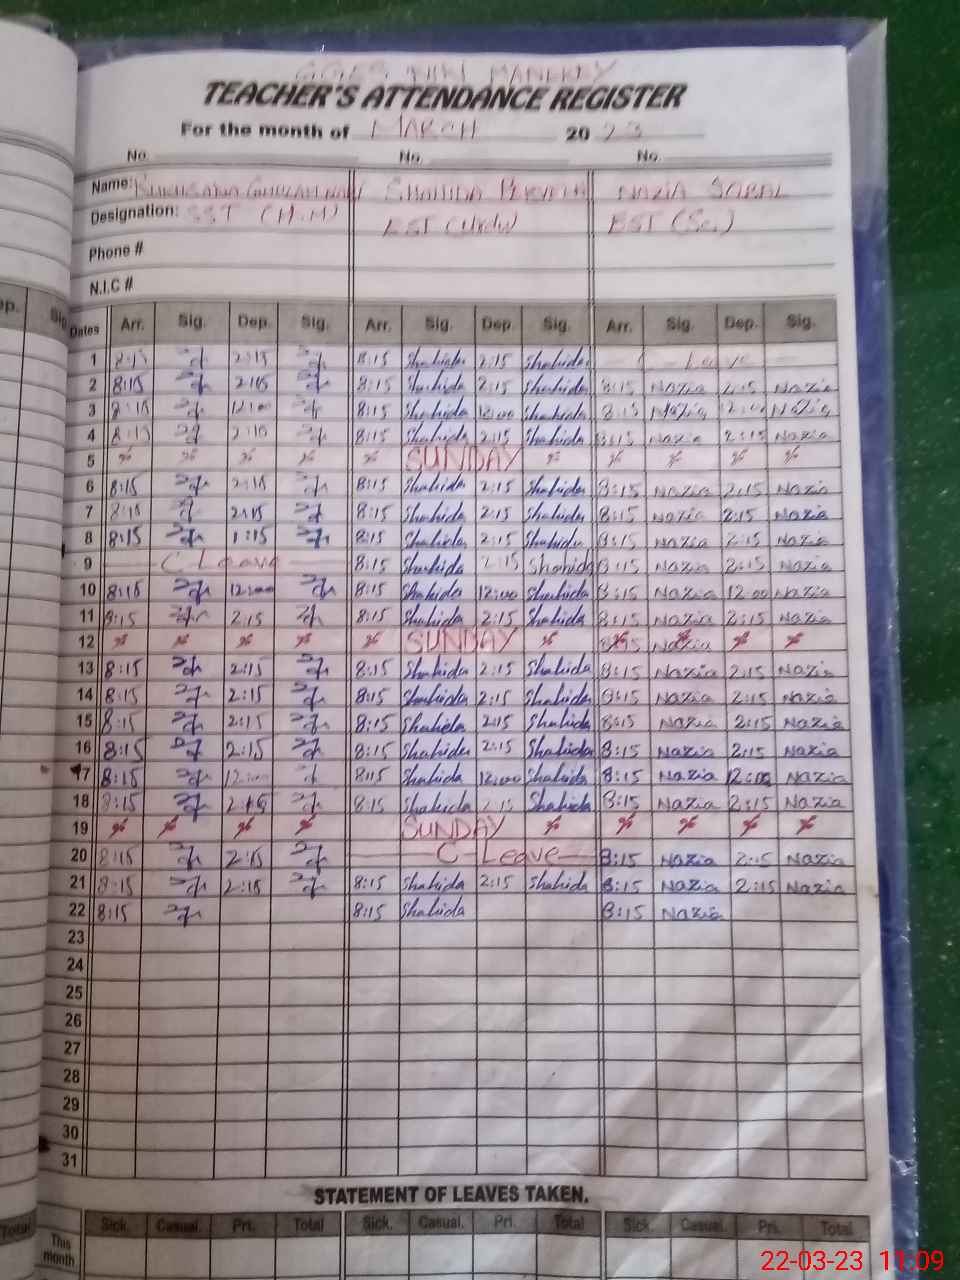 TEACHER'S ATTENDANCE REGISTER
For the month of MARCH 2023
No. No. No.
Name: GHULAM NABI SHAHIDA PERVEEN NAZIA
Designation: SST (H.M) EST (Urdu) EST (Sc.)
Phone #
N.I.C #
ep. Sig
Dates Arr. Sig. Dep. Sig. Arr. Sig. Dep. Sig. Arr. Sig. Dep. Sig.
1 8:15 2:15 8:15 Shahida 2:15 Shahida C-Leave
2 8:15 2:15 8:15 Shahida 2:15 Shahida 8:15 Nazia 2:15 Nazia
3 8:15 12:00 8:15 Shahida 12:00 Shahida 8:15 Nazia 12:00 Nazia
4 8:15 2:15 8:15 Shahida 2:15 Shahida 8:15 Nazia 2:15 Nazia
5 SUNDAY
6 8:15 2:15 8:15 Shahida 2:15 Shahida 8:15 Nazia 2:15 Nazia
7 8:15 2:15 8:15 Shahida 2:15 Shahida 8:15 Nazia 2:15 Nazia
8 8:15 1:15 8:15 Shahida 2:15 Shahida 8:15 Nazia 2:15 Nazia
9 C Leave 8:15 Shahida 2:15 Shahida 8:15 Nazia 2:15 Nazia
10 8:15 12:00 8:15 Shahida 12:00 Shahida 8:15 Nazia 12:00 Nazia
11 8:15 2:15 8:15 Shahida 2:15 Shahida 8:15 Nazia 2:15 Nazia
12 SUNDAY 8:15 Nazia
13 8:15 2:15 8:15 Shahida 2:15 Shahida 8:15 Nazia 2:15 Nazia
14 8:15 2:15 8:15 Shahida 2:15 Shahida 8:15 Nazia 2:15 Nazia
15 8:15 2:15 8:15 Shahida 2:15 Shahida 8:15 Nazia 2:15 Nazia
16 8:15 2:15 8:15 Shahida 2:15 Shahida 8:15 Nazia 2:15 Nazia
17 8:15 12:00 8:15 Shahida 12:00 Shahida 8:15 Nazia 12:00 Nazia
18 8:15 2:15 8:15 Shahida 2:15 Shahida 8:15 Nazia 2:15 Nazia
19 SUNDAY
20 8:15 2:15 C-Leave 8:15 Nazia 2:15 Nazia
21 8:15 2:15 8:15 Shahida 2:15 Shahida 8:15 Nazia 2:15 Nazia
22 8:15 8:15 Shahida 8:15 Nazia
23
24
25
26
27
28
29
30
31
STATEMENT OF LEAVES TAKEN.
Total Sick. Casual. Pri. Total Sick. Casual. Pri. Total Sick. Casual. Pri. Total
This month
22-03-23 11:09